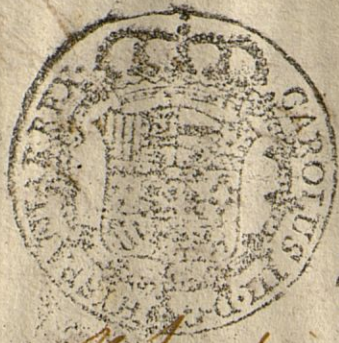 CAROLUS III · D · G · HISPANIAR · REX ·